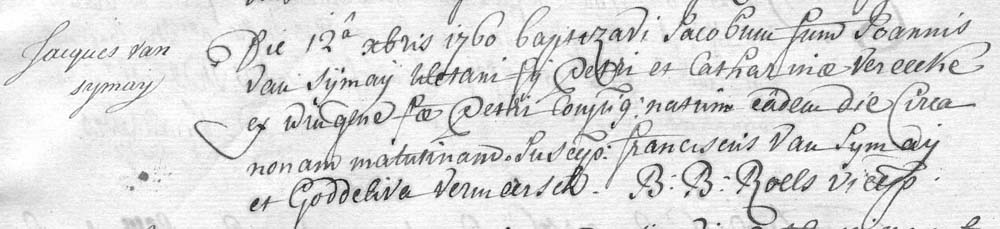 Jacques van
symay
Die 12ª xbris 1760 baptizavi Jacobum fium Joannis
van Symay ulctani fij Petri et Catharinæ vereecke
ex wingene fæ Petri Conjug: natum eâdem die Circa
nonam matutinam. Suscep: franciscus van Symay
et Goddeliva vermeersch. B: B: Roels vicep: